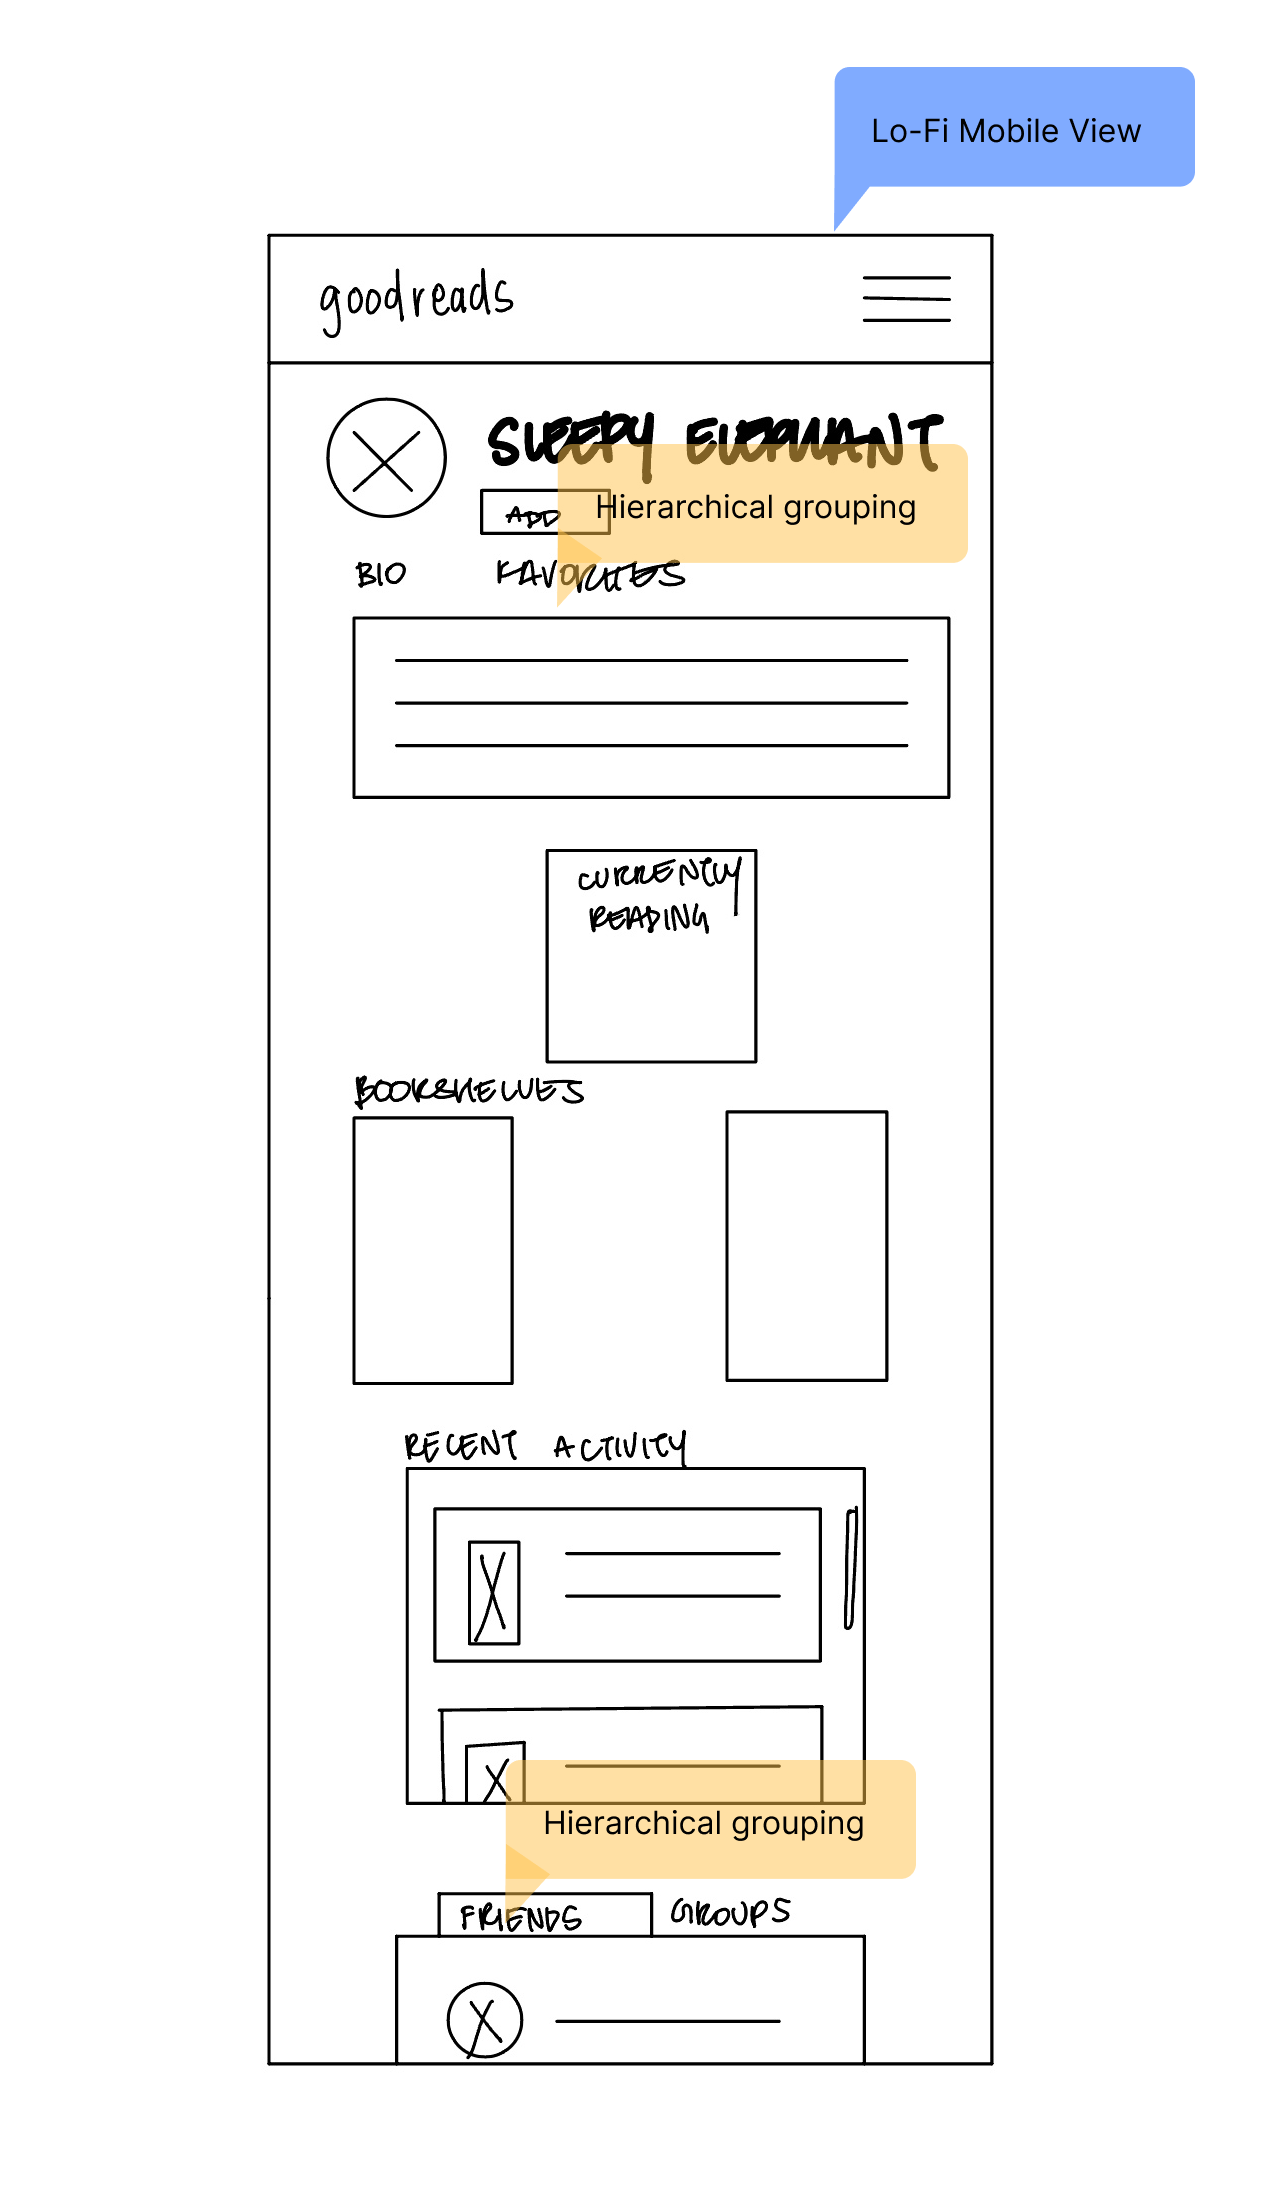 Lo-Fi Mobile View
goodreads
SLEEPY ELEPHANT
ADD
Hierarchical grouping
BIO FAVORITES
CURRENTLY
READING
BOOKSHELVES
RECENT ACTIVITY
Hierarchical grouping
FRIENDS GROUPS